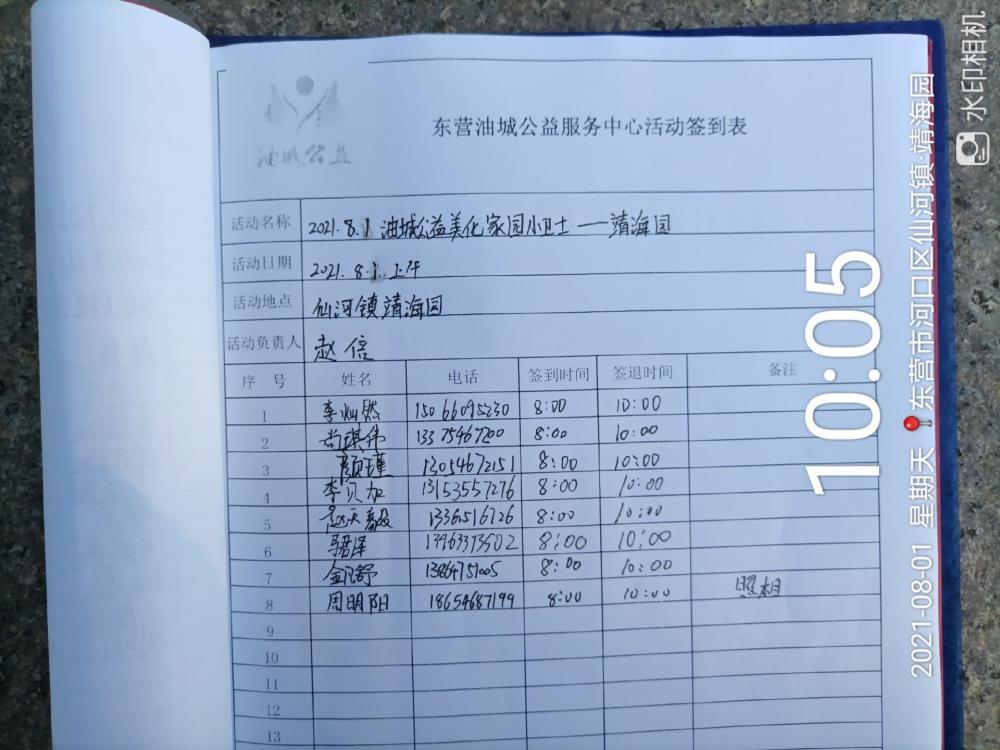 油城公益
东营油城公益服务中心活动签到表
活动名称 2021.8.1 油城公益美化家园小卫士——靖海园
活动日期 2021.8.1.上午
活动地点 仙河镇靖海园
活动负责人 赵倍
序号 姓名 电话 签到时间 签退时间 备注
1 李灿然 15066095230 8:00 10:00
2 尚琪伟 13375467200 8:00 10:00
3 颜瑾 13054672151 8:00 10:00
4 李贝加 13153557276 8:00 10:00
5 赵天毅 13361516726 8:00 10:00
6 马君泽 13963373502 8:00 10:00
7 8:00 10:00
8 周明阳 18654687199 8:00 10:00 照相
9
10
11
12
13
10:05
2021-08-01 星期天 东营市河口区仙河镇·靖海园
水印相机